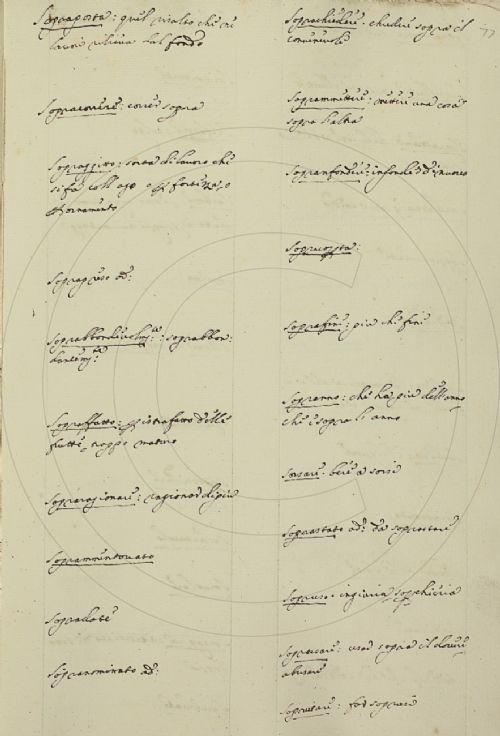 Sopraposta: quel rialto che ne
lavori rilieva dal fondo
Sopracorrere: correr sopra
Sopraggitto: sorta di lavoro che
si fa coll'ago o p fortezza, o
p ornamento
Soprapreso ad:
Soprabbondevolmte: soprabbon=
dantemte
Sopraffatto: p istrafatto delle
frutte troppo mature
Sopraragionare: ragionar di più
Soprammentovato
Sopradote
Sopranominato ad:
77
Soprachiedere: chieder sopra il
convenevole
Soprammettere: mettere una cosa
sopra l'altra
Soprainfondere: infonder di nuovo
Sopracoperta:
Soprafine: più che fine
Sopranno: che ha più dell'anno,
che è sopra l'anno
Sorsare: bere a sorsi
Soprastato ad: da soprastare
Sopruso: ingiuria soperchieria
Soprusare: usar sopra il dovere
abusare